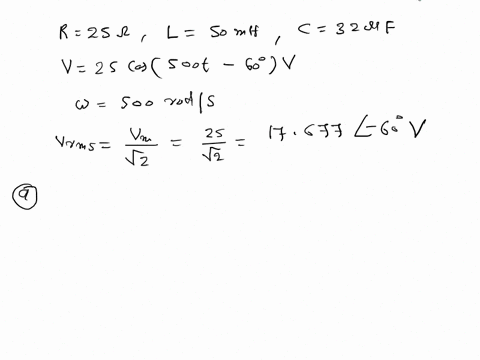 R = 25 Ω, L = 50 mH, C = 32 μF
V = 25 cos(500t - 60°) V
ω = 500 rad/s
Vrms = Vm/√2 = 25/√2 = 17.677 ∠-60° V
a